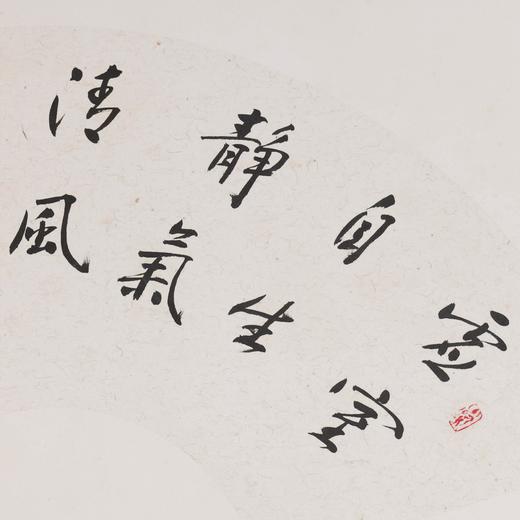 室
自生
靜氣
清風